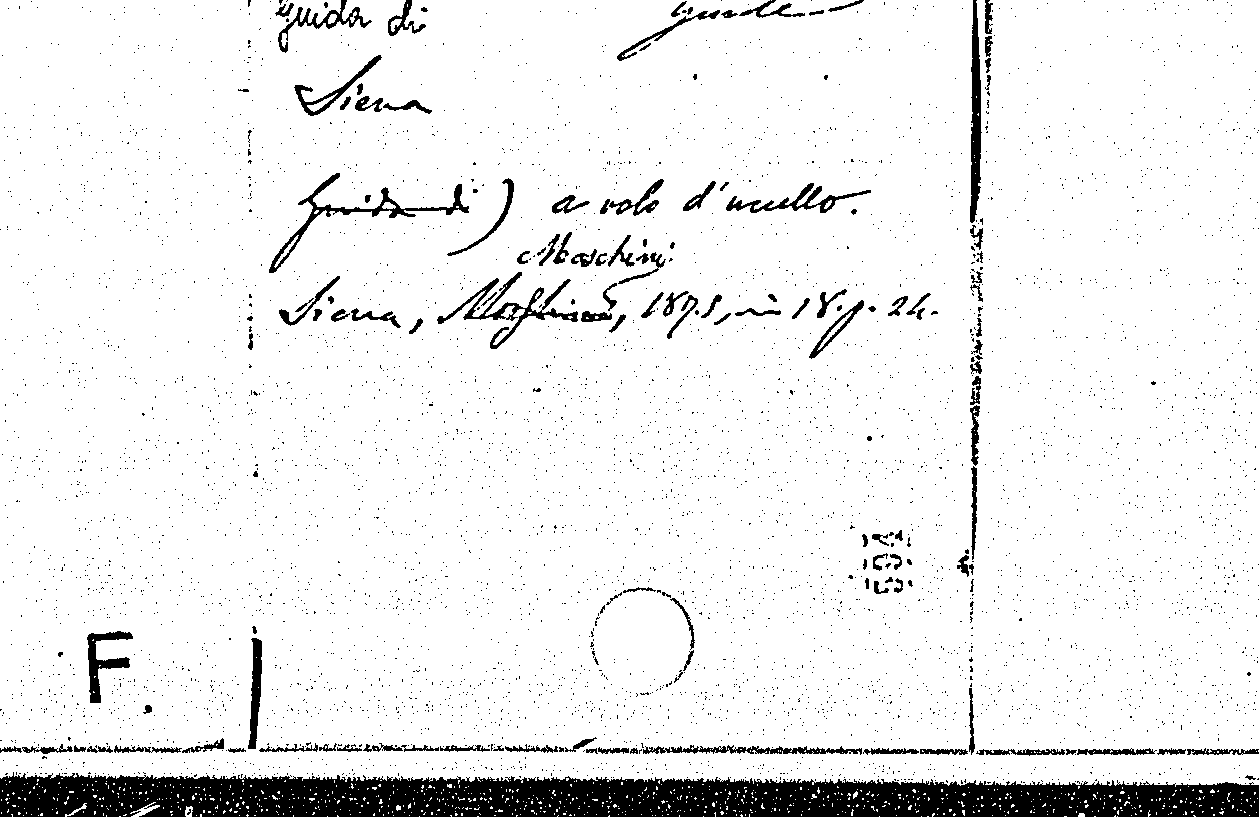 guida di guide
Siena
Guida di) a volo d'uccello.
Moschini
Siena, 1875, in 18. p. 24.
F